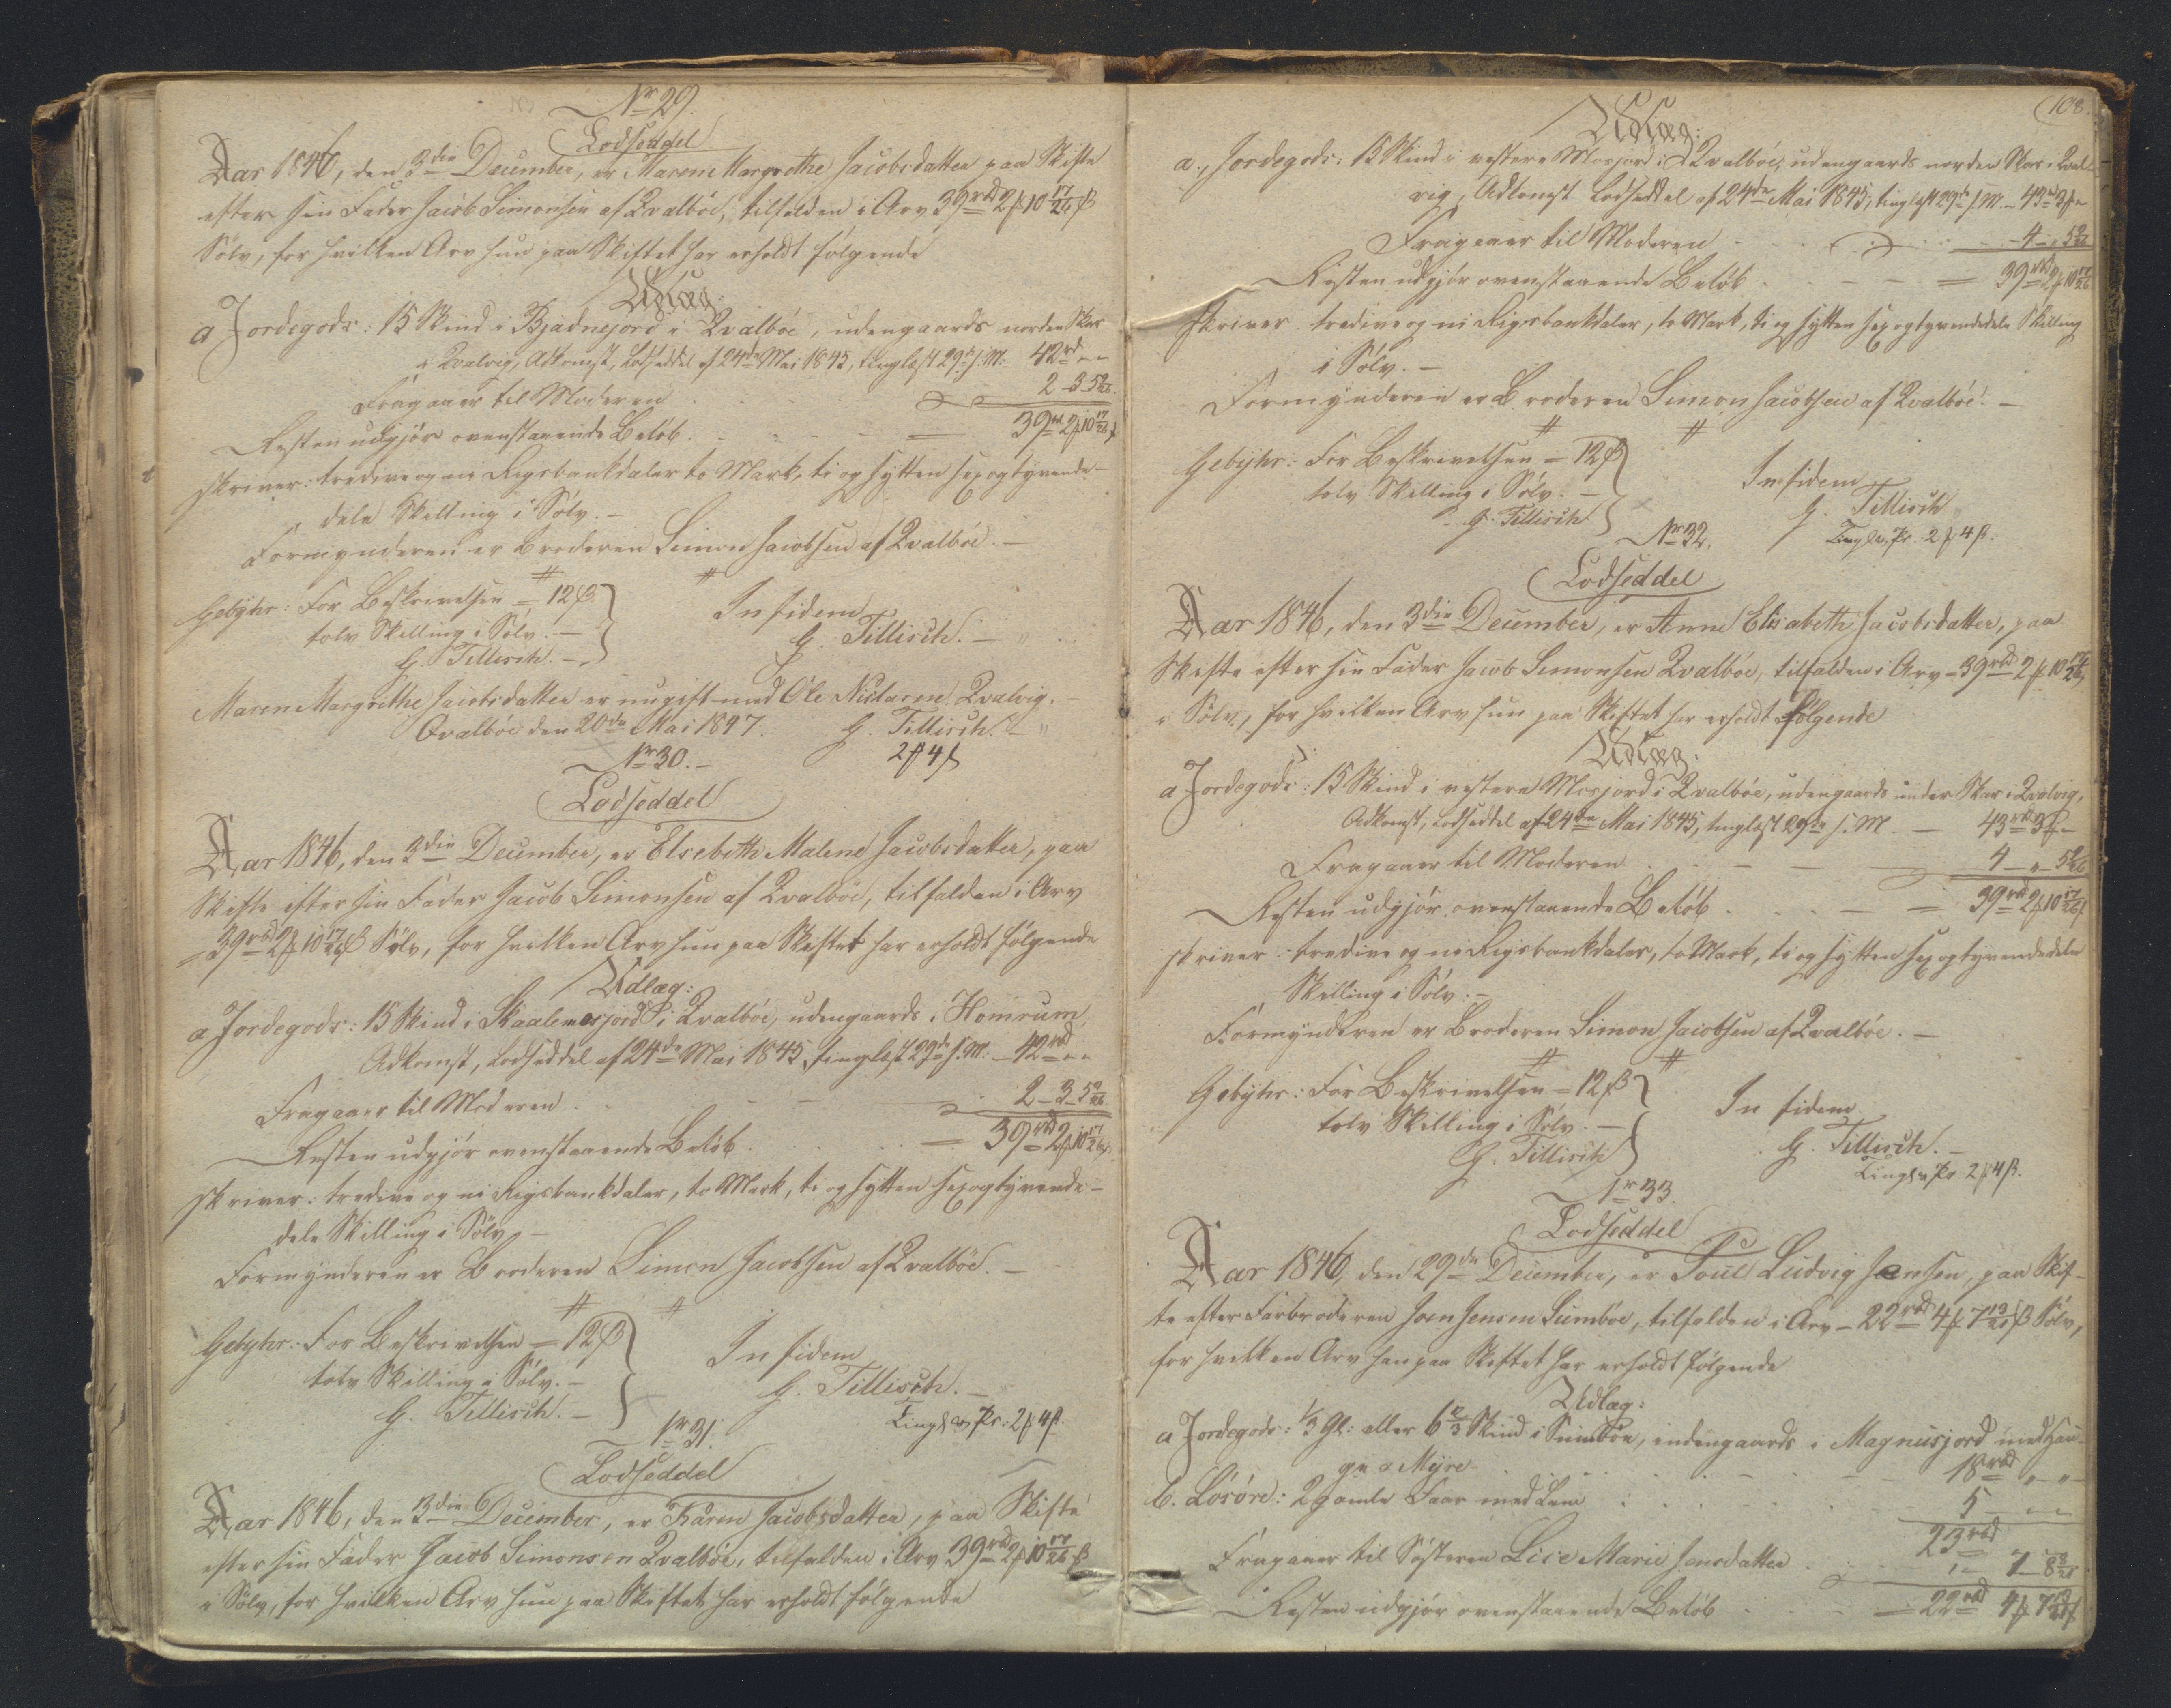 Nr 29.
Lodseddel
Aar 1846, den 3die December, er Maren Margrethe Jacobsdatter paa Skifte
efter sin Fader Jacob Simonsen af Qvalböe, tilfalden i Arv 39rbd 2 ₻ 10 17/26 ß
Sölv, for hvilken Arv hun paa Skiftet har erholdt fölgende
Udlæg:
a Jordegods: 15 Skind i Bjadnejord i Qvalböe, udengaards norden Skar
i Qvalvig, Adkomst, Lodseddel af 24de Mai 1845, tinglæst 29de s. M. 42rd " "
Fragaaer til Moderen 2 - 3 5 9/26
Resten udgjör ovenstaaende Belöb = 39rd 2 ₻ 10 17/26 ß
skriver: tredive og ni Rigsbankdaler to Mark, ti og sytten sex og tyvende-
dele Skilling i Sölv. -
Formynderen er Broderen Simon Jacobsen af Qvalböe. -
Gebyhr: For Beskrivelsen = 12 ß
tolv Skilling i Sölv. -
G. Tillisch. -
In fidem
G. Tillisch. -
Maren Margrethe Jacobsdatter er nu gift med Ole Nielsen Qvalvig.
Qvalböe den 20de Mai 1847. G. Tillisch. -
2 ₻ 4 ß
Nr 30. -
Lodseddel
Aar 1846, den 3die December, er Elsebeth Malene Jacobsdatter, paa
Skifte efter sin Fader Jacob Simonsen af Qvalböe, tilfalden i Arv
= 39rbd 2 ₻ 10 17/26 ß Sölv, for hvilken Arv hun paa Skiftet har erholdt fölgende
Udlæg:
a Jordegods: 15 Skind i Skaalemosjord i Qvalböe, udengaards i Homrum
Adkomst, Lodseddel af 24de Mai 1845, tinglæst 29de s. M. - 42rbd " "
Fragaaer til Moderen 2 - 3 - 5 9/26
Resten udgjör ovenstaaende Belöb = 39rbd 2 ₻ 10 17/26 ß
skriver: tredive og ni Rigsbankdaler, to Mark, ti og sytten sex og tyvende-
dele Skilling i Sölv. -
Formynderen er Broderen Simon Jacobsen af Qvalböe. -
Gebyhr: For Beskrivelsen = 12 ß
tolv Skilling i Sölv. -
G. Tillisch. -
In fidem
G. Tillisch. -
Tinglæsn. Pr: 2 ₻ 4 ß.
Nr 31.
Lodseddel
Aar 1846, den 3die December, er Karen Jacobsdatter, paa Skifte
efter sin Fader Jacob Simonsen Qvalböe, tilfalden i Arv 39rbd 2 ₻ 10 17/26 ß
i Sölv, for hvilken Arv hun paa Skiftet har erholdt fölgende
108.
Udlæg:
a., Jordegods: 15 Skind i vestere Mosjord i Qvalböe, udengaards norden Skar i Qval-
vig, Adkomst Lodseddel af 24de Mai 1845, tinglæst 29de s. M. - 43rd 3 ₻ "
Fragaaer til Moderen 4 - " 5 9/26
Resten udgjör ovenstaaende Belöb = 39rbd 2 ₻ 10 17/26
skriver tredive og ni Rigsbankdaler, to Mark, ti og sytten sex og tyvendedele Skilling
i Sölv. -
Formynderen er Broderen Simon Jacobsen af Qvalböe. -
Gebyhr: For Beskrivelsen = 12 ß
tolv Skilling i Sölv. -
G. Tillisch
In fidem
G. Tillisch
Tinglæsn. Pr. 2 ₻ 4 ß.
Nr 32.
Lodseddel
Aar 1846, den 3die December, er Anne Elisabeth Jacobsdatter, paa
Skifte efter sin Fader Jacob Simonsen Qvalböe, tilfalden i Arv - 39rbd 2 ₻ 10 17/26
i Sölv, for hvilken Arv hun paa Skiftet har erholdt fölgende
Udlæg:
a Jordegods: 15 Skind i vestere Mosjord i Qvalböe, udengaards under Skar i Qvalvig,
Adkomst, Lodseddel af 24de Mai 1845, tinglæst 29de s. M. - 43rbd 3 ₻ -
Fragaaer til Moderen 4 - " - 5 9/26
Resten udgjör ovenstaaende Belöb = 39rbd 2 ₻ 10 17/26 ß
skriver tredive og ni Rigsbankdaler, to Mark, ti og sytten sex og tyvendedele
Skilling i Sölv. -
Formynderen er Broderen Simon Jacobsen af Qvalböe. -
Gebyhr: For Beskrivelsen = 12 ß
tolv Skilling i Sölv. -
G. Tillisch
In fidem
G. Tillisch. -
Tinglæsn. Pr. 2 ₻ 4 ß.
Nr 33.
Lodseddel
Aar 1846, den 29de December, er Poul Ludvig Jensen, paa Skif-
te efter Farbroderen Joen Jensen Sumböe, tilfalden i Arv - 22rbd 4 ₻ 7 13/21 ß Sölv,
for hvilken Arv han paa Skiftet har erholdt fölgende
Udlæg:
a Jordegods: 1/3 Gl: eller 6 2/3 Skind i Sumböe, indengaards i Magnusjord med Hau-
ge a Myre 18rbd " - "
b. Lösöre: 2 gamle Faar med Lam 5 - " -
23rbd
Fragaaer til Sösteren Lise Marie Jensdatter " - 1 - 8 8/21
Resten udgjör ovenstaaende Belöb = 22rbd 4 ₻ 7 13/21 ß